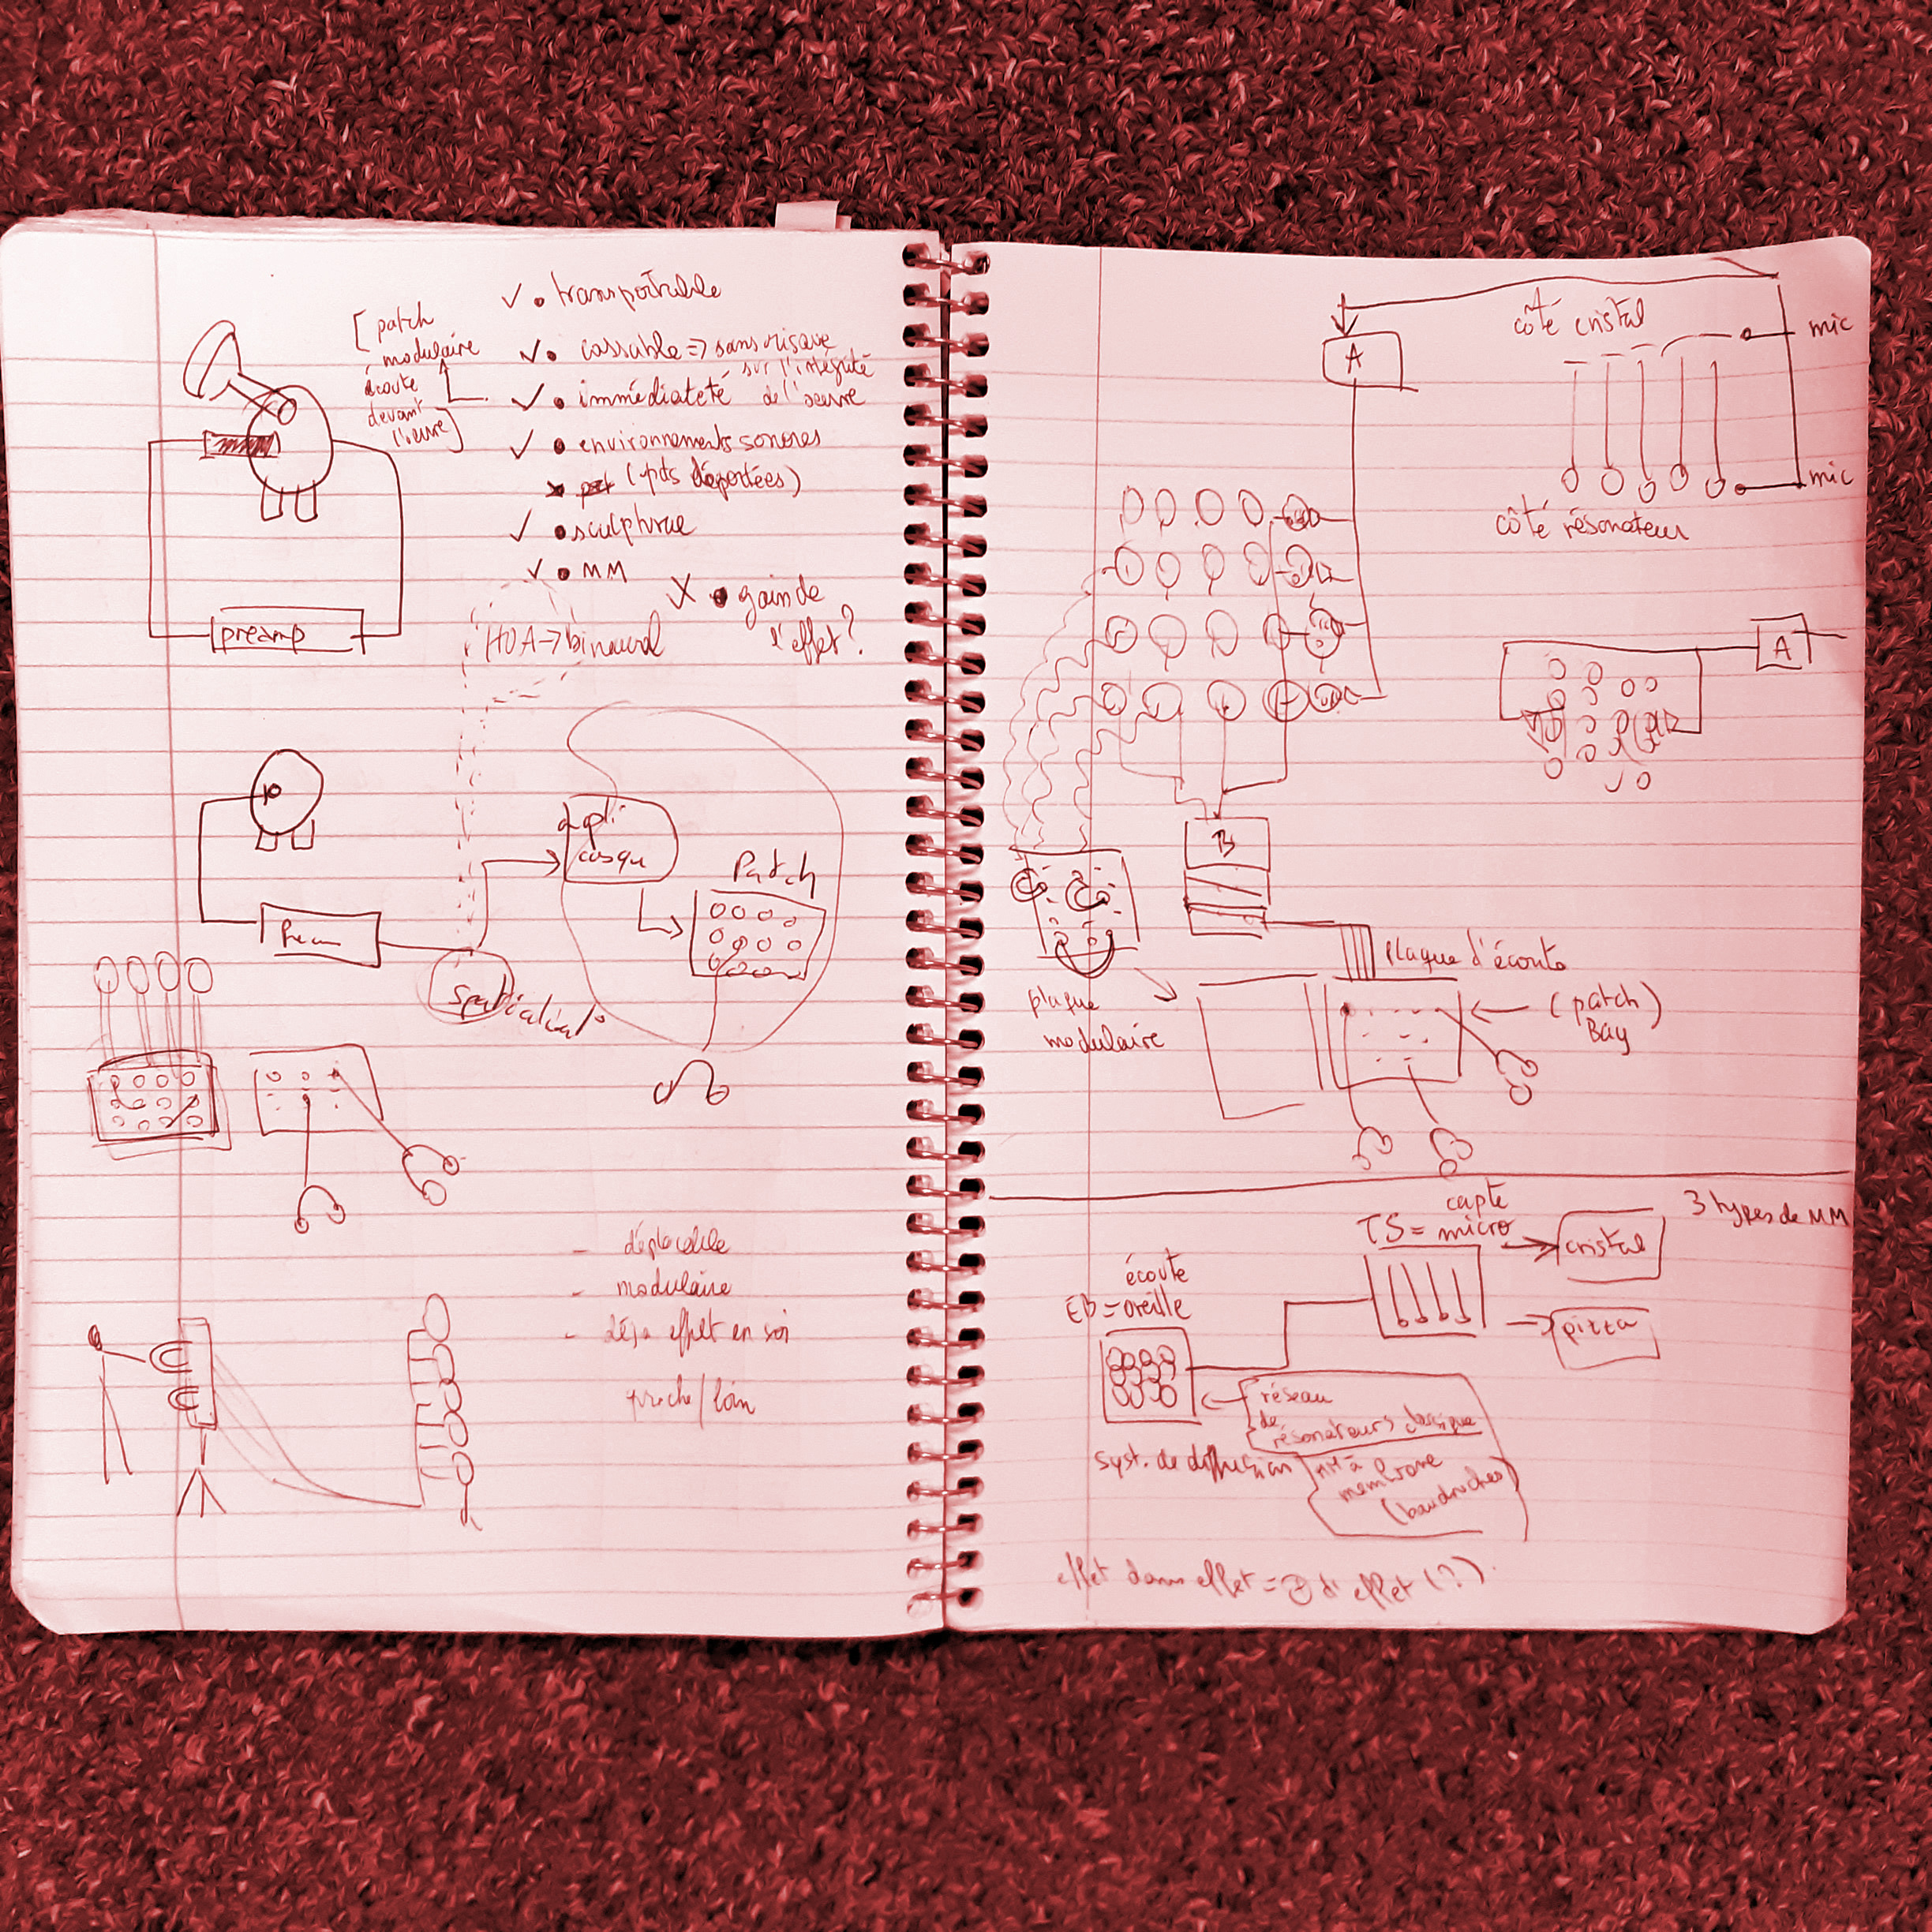 [patch
modulaire
écoute
devant
l'œuvre]
✓ • transportable
✓ • cassable => sans risque
sur l'intégrité
✓ • immédiateté de l'œuvre
✓ • environnements sonores
(pts déportées)
✓ • sculpture
✓ • MM
X • gain de
l'effet?
HOA → binaural
preamp
casque
Patch
Pream
- déplaçable
- modulaire
- déjà effet en soi
proche/loin
A
côté cristal
mic
mic
côté résonateur
A
B
plaque d'écoute
(patch)
Bay
plaque
modulaire
3 types de MM
capte
TS = micro
cristal
pizza
écoute
EB = oreille
réseau
de
résonateurs classique
syst. de diffusion
MM à
membrane
(baudruches)
effet dans effet = d'effet (?).